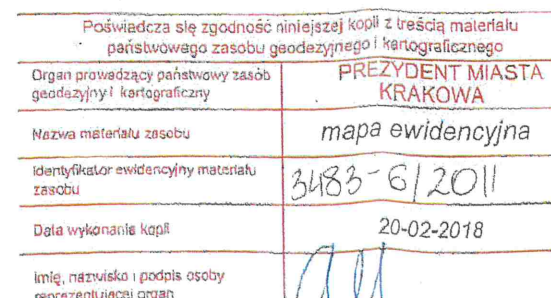 Poświadcza się zgodność niniejszej kopii z treścią materiału
państwowego zasobu geodezyjnego i kartograficznego
Organ prowadzący państwowy zasób
geodezyjny i kartograficzny
PREZYDENT MIASTA
KRAKOWA
Nazwa materiału zasobu
mapa ewidencyjna
Identyfikator ewidencyjny materiału
zasobu
3483-6/2011
Data wykonania kopii
20-02-2018
Imię, nazwisko i podpis osoby
reprezentującej organ